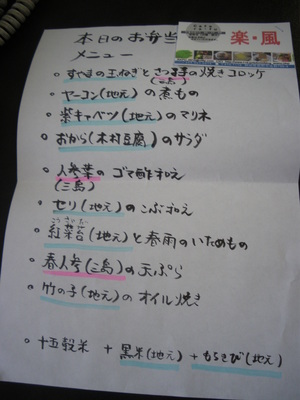 本日のお弁当
メニュー
楽・風
の玉ねぎとさつま芋の焼きコロッケ
(三島)
ヤーコン(地元)の煮もの
紫キャベツ(地元)のマリネ
おから(木村豆腐)のサラダ
人参葉のゴマ酢和え
(三島)
セリ(地元)のこぶ和え
こうさいたい
紅菜苔(地元)と春雨のいためもの
春人参(三島)の天ぷら
竹の子(地元)のオイル焼き
十五穀米 + 黒米(地元) + もちきび(地元)